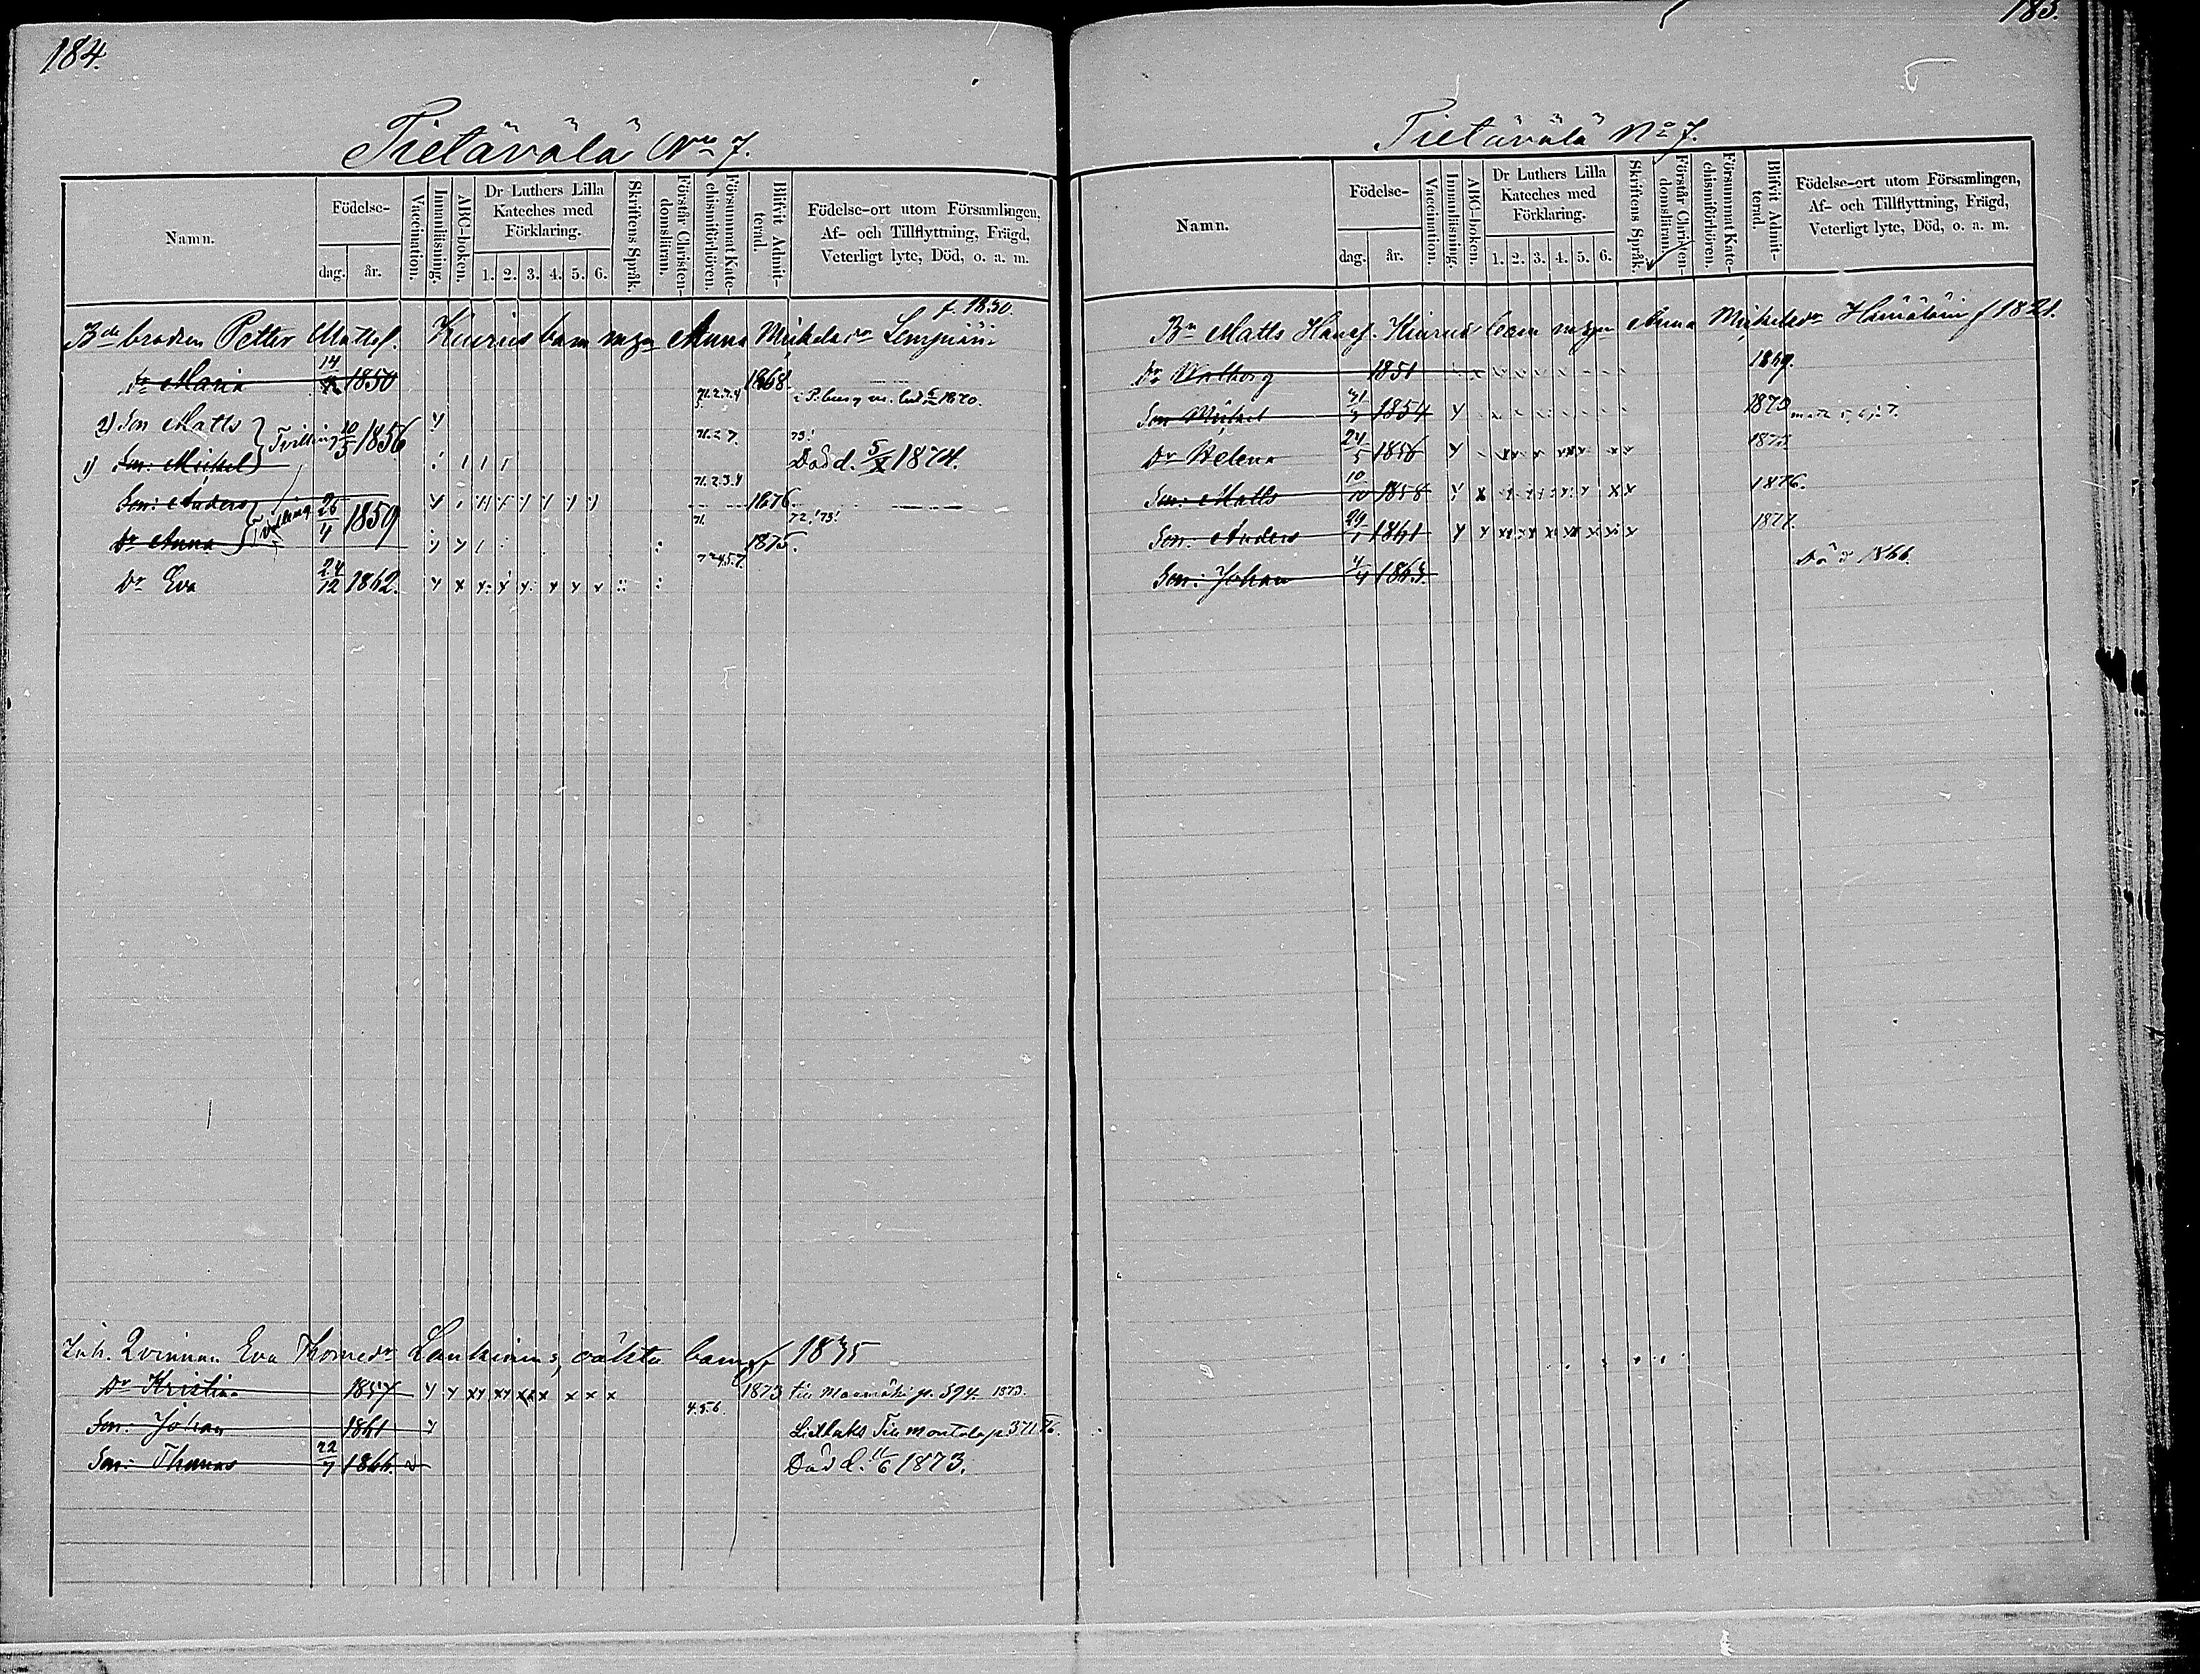 184.
Tietävälä No 7.
Namn.
Födelse-
dag.
år.
Vaccination.
Innanläsning.
ABC-boken.
Dr Luthers Lilla
Kateches med
Förklaring.
1. 2. 3. 4. 5. 6.
Skriftens Språk.
Förstår Christen-
domsläran.
Försummat Kate-
chismiförhören.
Blifvit Admit-
terad.
Födelse-ort utom Församlingen,
Af- och Tillflyttning, Frägd,
Veterligt lyte, Död, o. a. m.
f. 1830.
3de brodren Petter Mattss. Kiurus barn m. Anna Mickelsdr
Dr Maria 14 1850 1868.
71.2.3.4
2) Son Matts Tvilling 10/5 1856
71.2 7. 73!
1) Son: Mickel Död d. 5/X 1874.
71.2.3.4
Son: Anders Tvilling 26/4 1859 1876.
71. 72, 73!
Dr Anna 1875.
Dr Eva 24/12 1862.
Inh. Qvinnan Eva Thomsdr oäkta barn f 1835
Dr Kristina 1857 1873 till p. 594. 1873.
4.5.6.
Son: Johan 1861
Son: Thomas 22/7 1866. Död d. 11/6 1873.
185.
Tietävälä No 7.
Namn.
Födelse-
dag.
år.
Vaccination.
Innanläsning.
ABC-boken.
Dr Luthers Lilla
Kateches med
Förklaring.
1. 2. 3. 4. 5. 6.
Skriftens Språk.
Förstår Christen-
domsläran.
Försummat Kate-
chismiförhören.
Blifvit Admit-
terad.
Födelse-ort utom Församlingen,
Af- och Tillflyttning, Frägd,
Veterligt lyte, Död, o. a. m.
Bn Matts Hanss. Kiurus barn m. Anna Mickelsdr Hämäläin f 1821.
Dr Walborg 1851 1869.
Son Mickel 1854 1873
Dr Helena 24/5 1856 1873.
Son: Matts 10/10 1858 1876.
Son: Anders 29/1 1861 1877.
Son: Johan 1865. Död 1866.